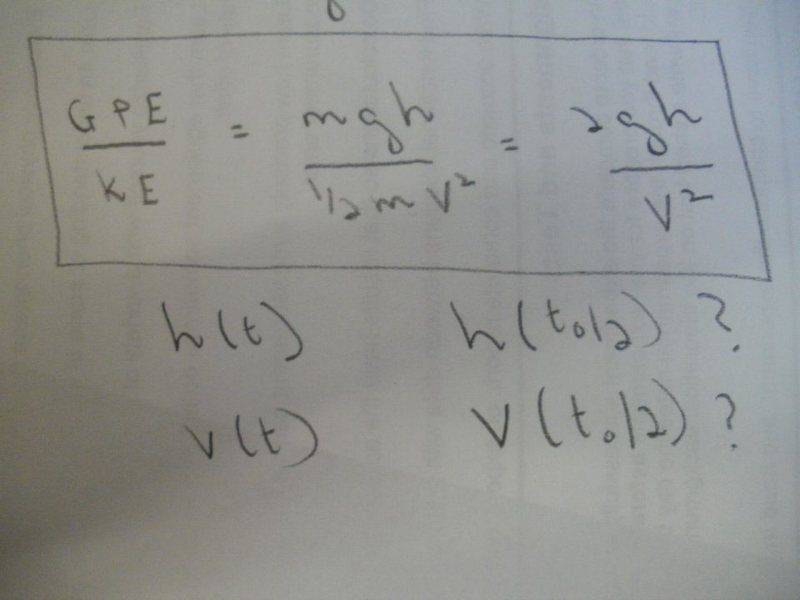 GPE/KE = mgh/½mv² = 2gh/v²
h(t) h(t₀/2)?
v(t) v(t₀/2)?